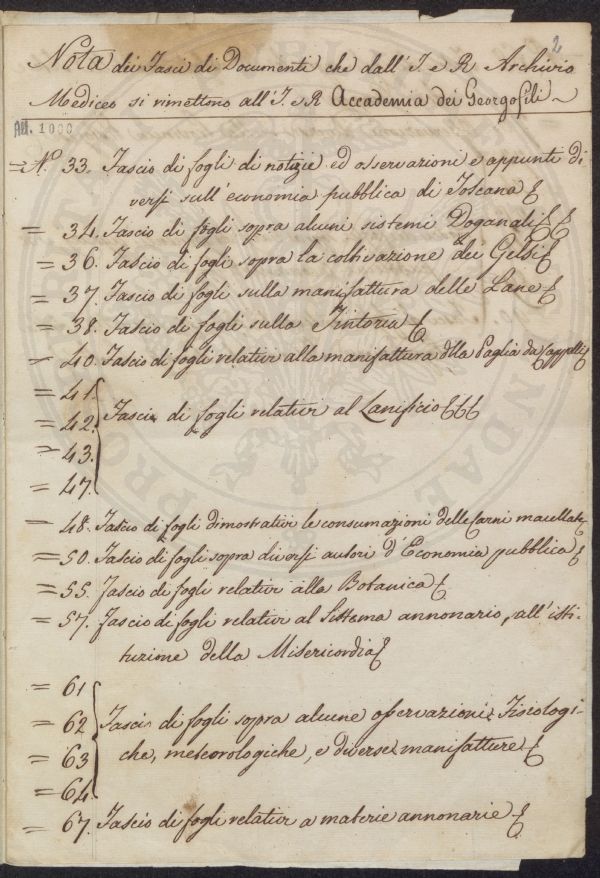 2
Nota dei Fasci di Documenti che dall' I e R Archivio
Mediceo si rimettono all' I. e R Accademia dei Georgofili
All. 1000
= N.º 33. Fascio di fogli di notizie ed osservazioni e appunti di-
versi sull' economia pubblica di Toscana
= 34. Fascio di fogli sopra alcuni sistemi Doganali
= 36. Fascio di fogli sopra la coltivazione dei Gelsi
= 37. Fascio di fogli sulla manifattura delle Lane
= 38. Fascio di fogli sulla Tintoria
= 40. Fascio di fogli relativi alla manifattura della Paglia da Cappelli
= 41.
= 42. Fasci di fogli relativi al Lanificio
= 43.
= 47.
= 48. Fascio di fogli dimostrativi le consumazioni delle Carni macellate
= 50. Fascio di fogli sopra diversi autori d' Economia pubblica
= 55. Fascio di fogli relativi alla Botanica
= 57. Fascio di fogli relativi al Sistema annonario, all' isti-
tuzione della Misericordia
= 61
= 62 Fasci di fogli sopra alcune osservazioni Fisiologi-
= 63 che, meteorologiche, e diverse manifatture
= 64
= 67. Fascio di fogli relativi a materie annonarie